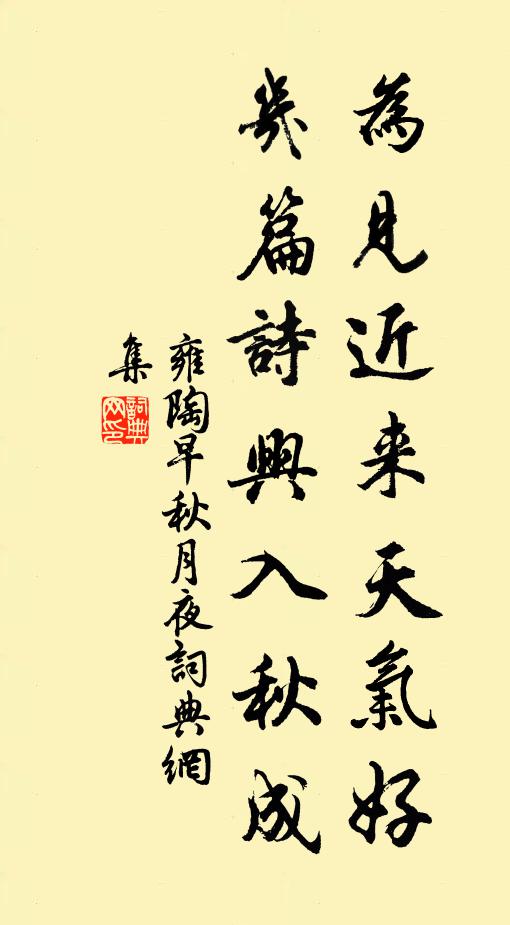 為見近来天氣好
幾篇詩興入秋成
雍陶早秋月夜詞典網
集
詞典
网印